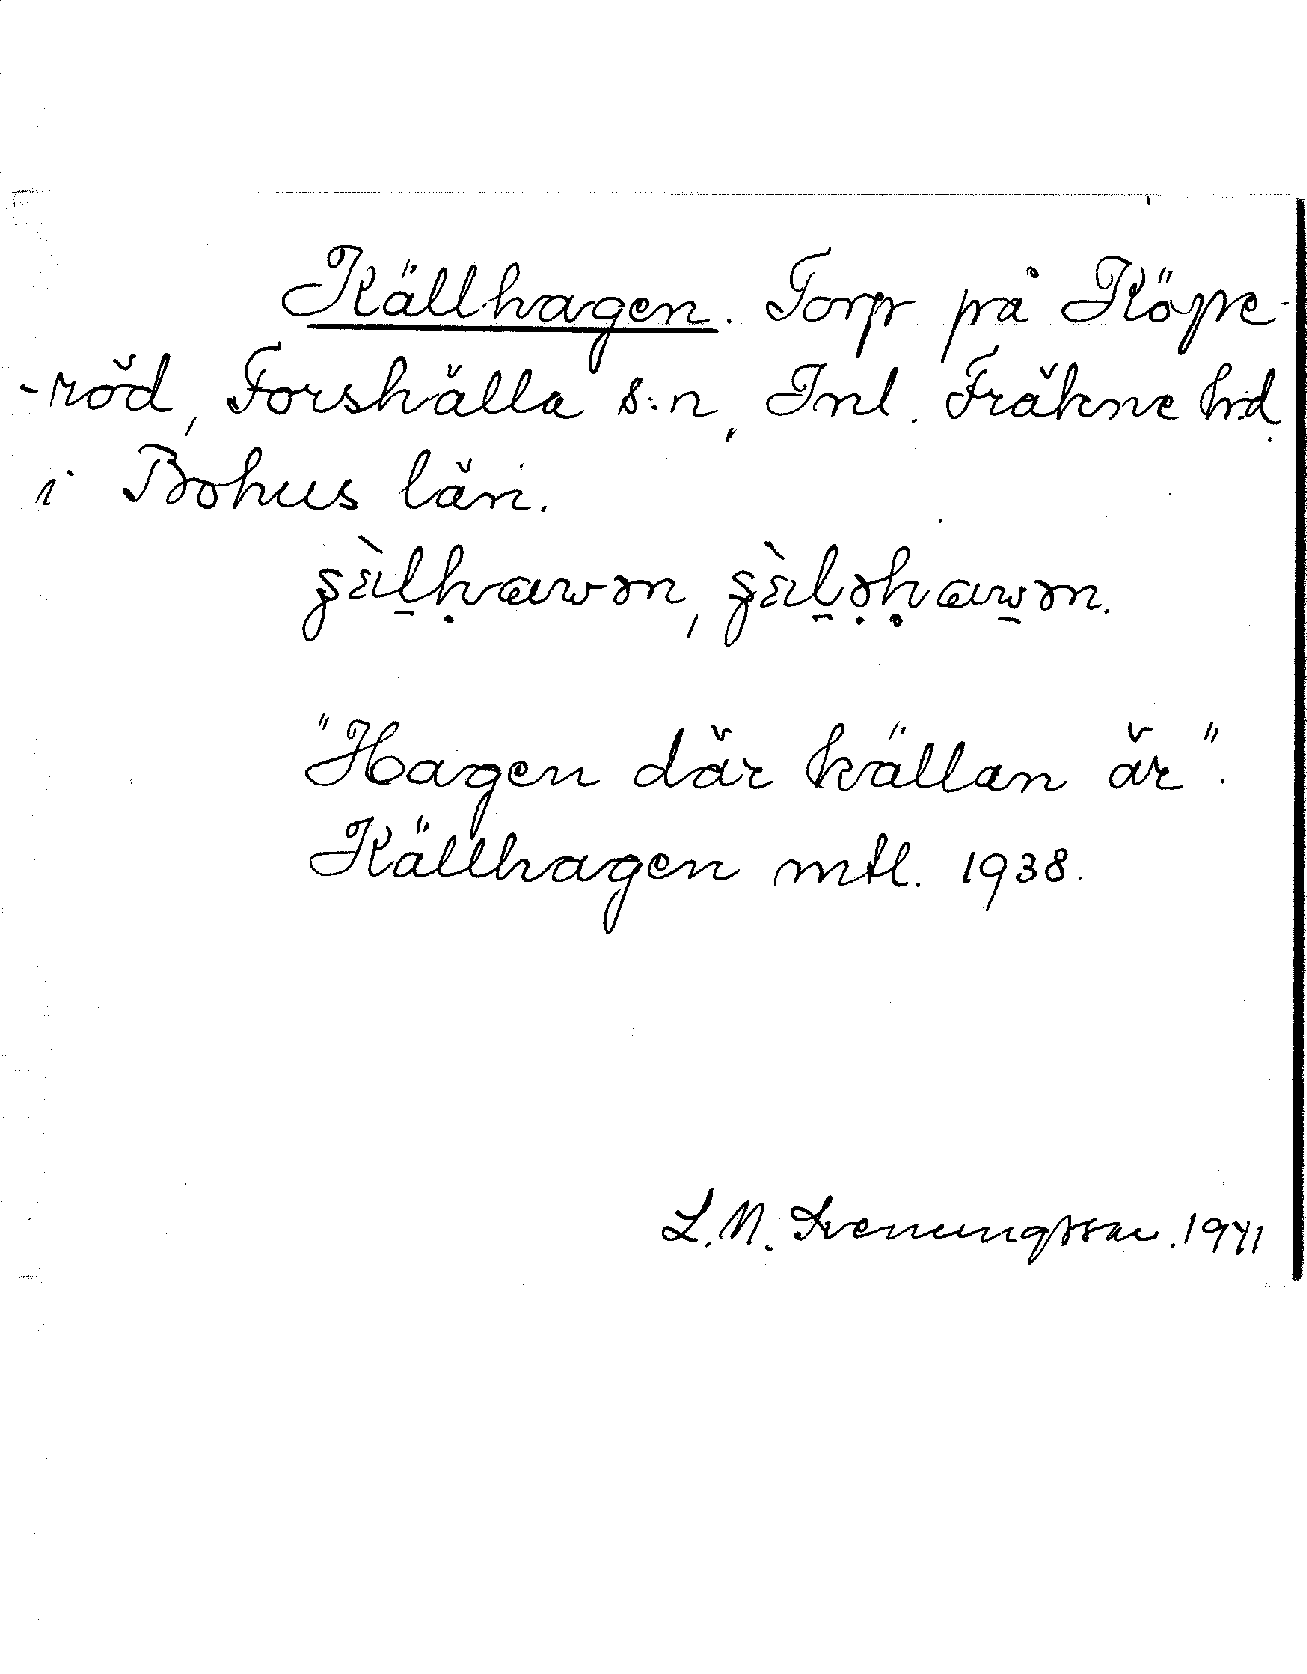 Källhagen. Torp på Köpe-
-röd, Forshälla s:n, Inl. Fräkne hd.
i Bohus län.
"Hagen där källan är".
Källhagen mtl. 1938.
L. N. Svenungsson. 1941